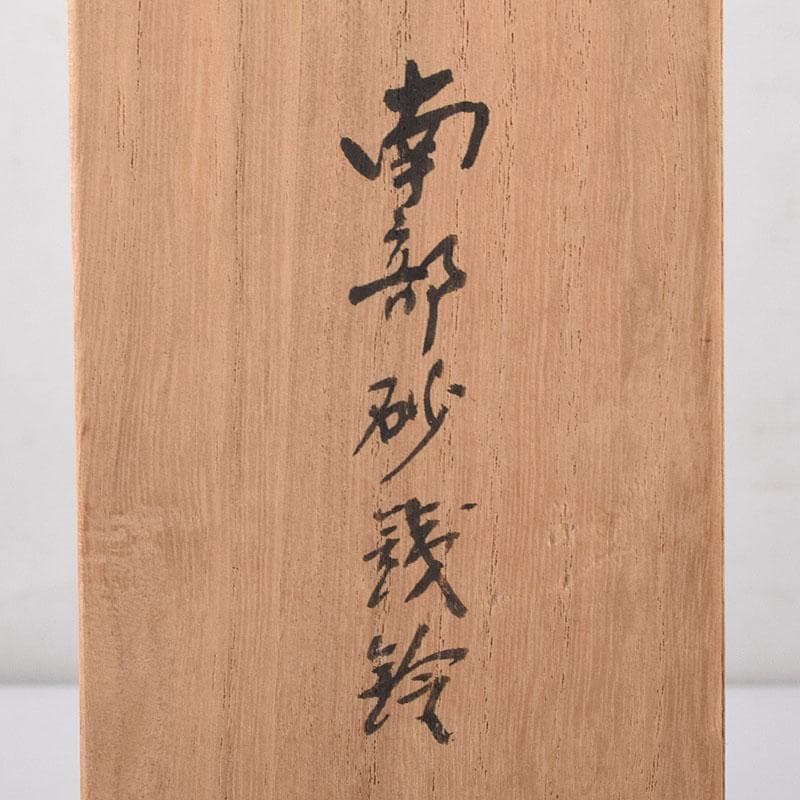 南部砂鉄鈴